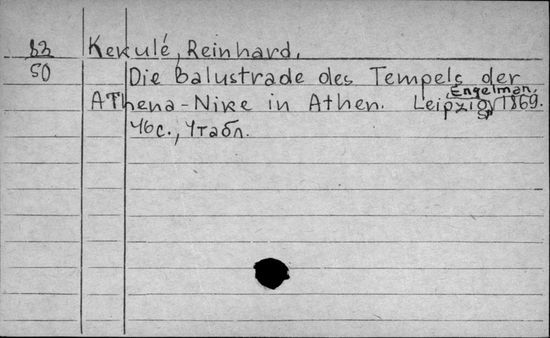 83 Kekulé, Reinhard.
50 Die Balustrade des Tempels der
Athena-Nike in Athen. Leipzig, Engelman, 1869.
46 с., 4 табл.